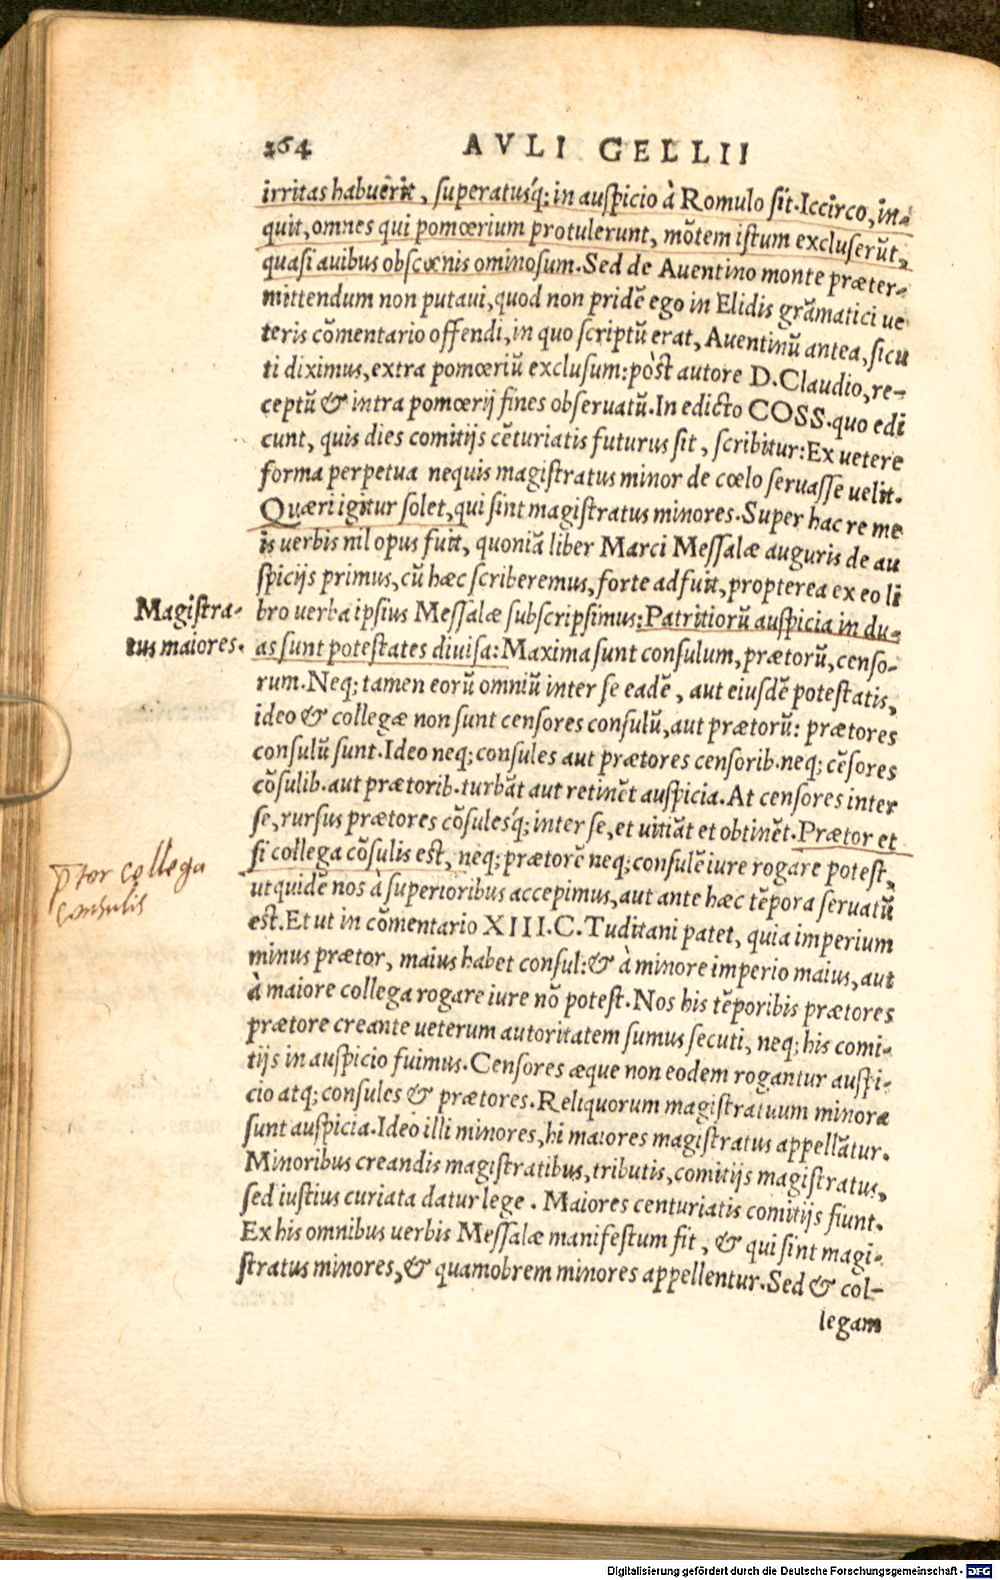 264 AVLI GELLII
irritas habuerit, superatusq́; in auspicio à Romulo sit. Iccirco, in-
quit, omnes qui pomœrium protulerunt, mõtem istum excluserũt,
quasi avibus obscœnis ominosum. Sed de Aventino monte præter-
mittendum non putavi, quod non pridẽ ego in Elidis grãmatici ve
teris cõmentario offendi, in quo scriptũ erat, Aventinũ antea, sicu
ti diximus, extra pomœriũ exclusum: pòst autore D. Claudio, re-
ceptũ & intra pomœrij fines observatũ. In edicto COSS. quo edi
cunt, quis dies comitijs cẽturiatis futurus sit, scribitur: Ex vetere
forma perpetua nequis magistratus minor de cœlo servasse velit.
Quæri igitur solet, qui sint magistratus minores. Super hac re me
is verbis nil opus fuit, quoniã liber Marci Messalæ auguris de au
spicijs primus, cũ hæc scriberemus, forte adfuit, propterea ex eo li
Magistra-
tus maiores.
bro verba ipsius Messalæ subscripsimus: Patritiorũ auspicia in du-
as sunt potestates divisa: Maxima sunt consulum, prætorũ, censo-
rum. Neq; tamen eorũ omniũ inter se eadẽ, aut eiusdẽ potestatis,
ideo & collegæ non sunt censores consulũ, aut prætorũ: prætores
consulũ sunt. Ideo neq; consules aut prætores censorib. neq; cẽsores
cõsulib. aut prætorib. turbãt aut retinẽt auspicia. At censores inter
se, rursus prætores cõsulesq́; inter se, et vitiãt et obtinẽt. Prætor et
si collega cõsulis est, neq; prætorẽ neq; consulẽ iure rogare potest,
p̄tor collega
consulis
ut quidẽ nos à superioribus accepimus, aut ante hæc tẽpora servatũ
est. Et ut in cõmentario XIII. C. Tuditani patet, quia imperium
minus prætor, maius habet consul: & à minore imperio maius, aut
à maiore collega rogare iure nõ potest. Nos his tẽporibis prætores
prætore creante veterum autoritatem sumus secuti, neq; his comi-
tijs in auspicio fuimus. Censores æque non eodem rogantur auspi-
cio atq; consules & prætores. Reliquorum magistratuum minora
sunt auspicia. Ideo illi minores, hi maiores magistratus appellãtur.
Minoribus creandis magistratibus, tributis, comitijs magistratus,
sed iustius curiata datur lege. Maiores centuriatis comitijs fiunt.
Ex his omnibus verbis Messalæ manifestum fit, & qui sint magi-
stratus minores, & quamobrem minores appellentur. Sed & col-
legam
Digitalisierung gefördert durch die Deutsche Forschungsgemeinschaft - DFG